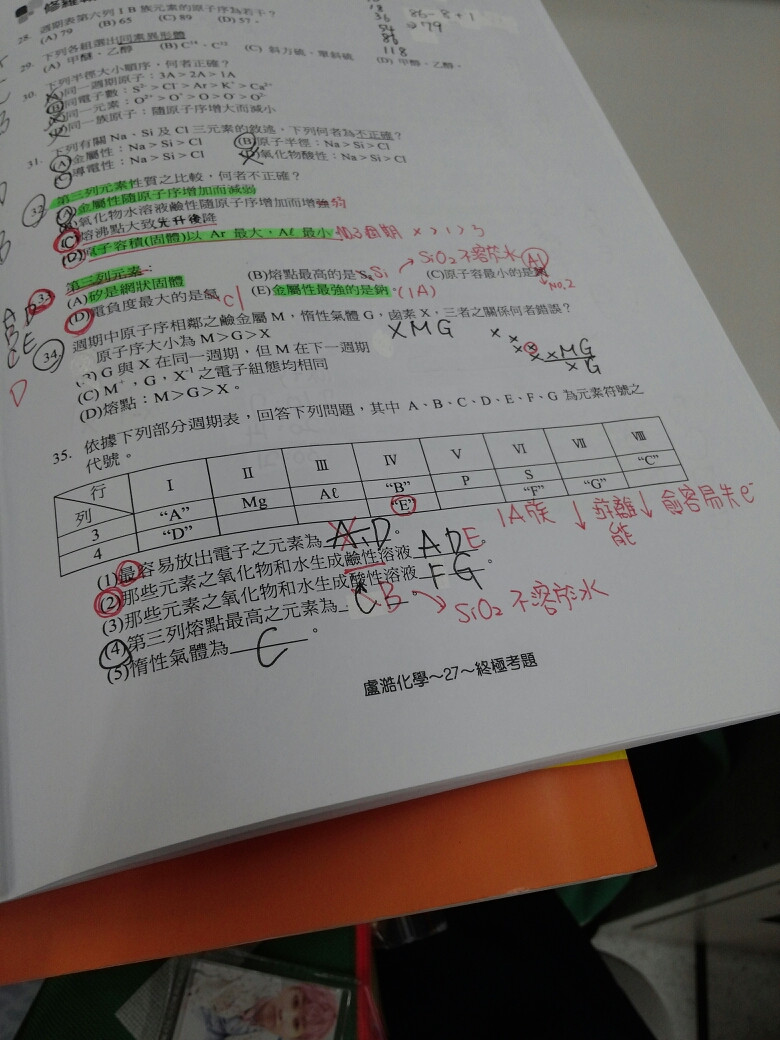 修羅
28. 週期表第六列 I B 族元素的原子序為若干？
(A) 79 (B) 65 (C) 89 (D) 57。
86-8+1
⇒79
18
36
54
86
118
29. 下列各組選出同素異形體
(A) 甲醚、乙醇 (B) C¹⁴、C¹² (C) 斜方硫、單斜硫 (D) 甲醇、乙醇。
30. 下列半徑大小順序，何者正確？
(A)同一週期原子：3A＞2A＞1A
(B)同電子數：S²⁻＞Cl⁻＞Ar＞K⁺＞Ca²⁺
同一元素：O²⁺＞O⁺＞O＞O⁻＞O²⁻
同一族原子：隨原子序增大而減小
31. 下列有關 Na、Si 及 Cl 三元素的敘述，下列何者為不正確？
(A)金屬性：Na＞Si＞Cl (B)原子半徑：Na＞Si＞Cl
(C)導電性：Na＞Si＞Cl (D)氧化物酸性：Na＞Si＞Cl
32. 第三列元素性質之比較，何者不正確？
(A)金屬性隨原子序增加而減弱
(B)氧化物水溶液鹼性隨原子序增加而增強弱
(C)熔沸點大致先升後降
(D)原子容積(固體)以 Ar 最大，Aℓ 最小
33. 第三列元素：
SiO₂ 不溶於水
(A)矽是網狀固體 (B)熔點最高的是 Si (C)原子容最小的是 Al
NO.2
(D)電負度最大的是氬 Cl (E)金屬性最強的是鈉。(1A)
34. 週期中原子序相鄰之鹼金屬 M，惰性氣體 G，鹵素 X，三者之關係何者錯誤？
原子大小為 M＞G＞X
XMG
G 與 X 在同一週期，但 M 在下一週期
(C) M⁺，G，X⁻¹ 之電子組態均相同
(D)熔點：M＞G＞X。
35. 依據下列部分週期表，回答下列問題，其中 A、B、C、D、E、F、G 為元素符號之
代號。
行 列 I II III IV V VI VII VIII
3 “A” Mg Aℓ “B” P S “G” “C”
4 “D” “E” “F”
1A族 ↓ 游離能 ↓ 愈容易失e⁻
(1)最容易放出電子之元素為 D 。
(2)那些元素之氧化物和水生成鹼性溶液 A D E 。
(3)那些元素之氧化物和水生成酸性溶液 F G 。
(4)第三列熔點最高之元素為 B 。 → SiO₂ 不溶於水
(5)惰性氣體為 C 。
盧澔化學～27～終極考題